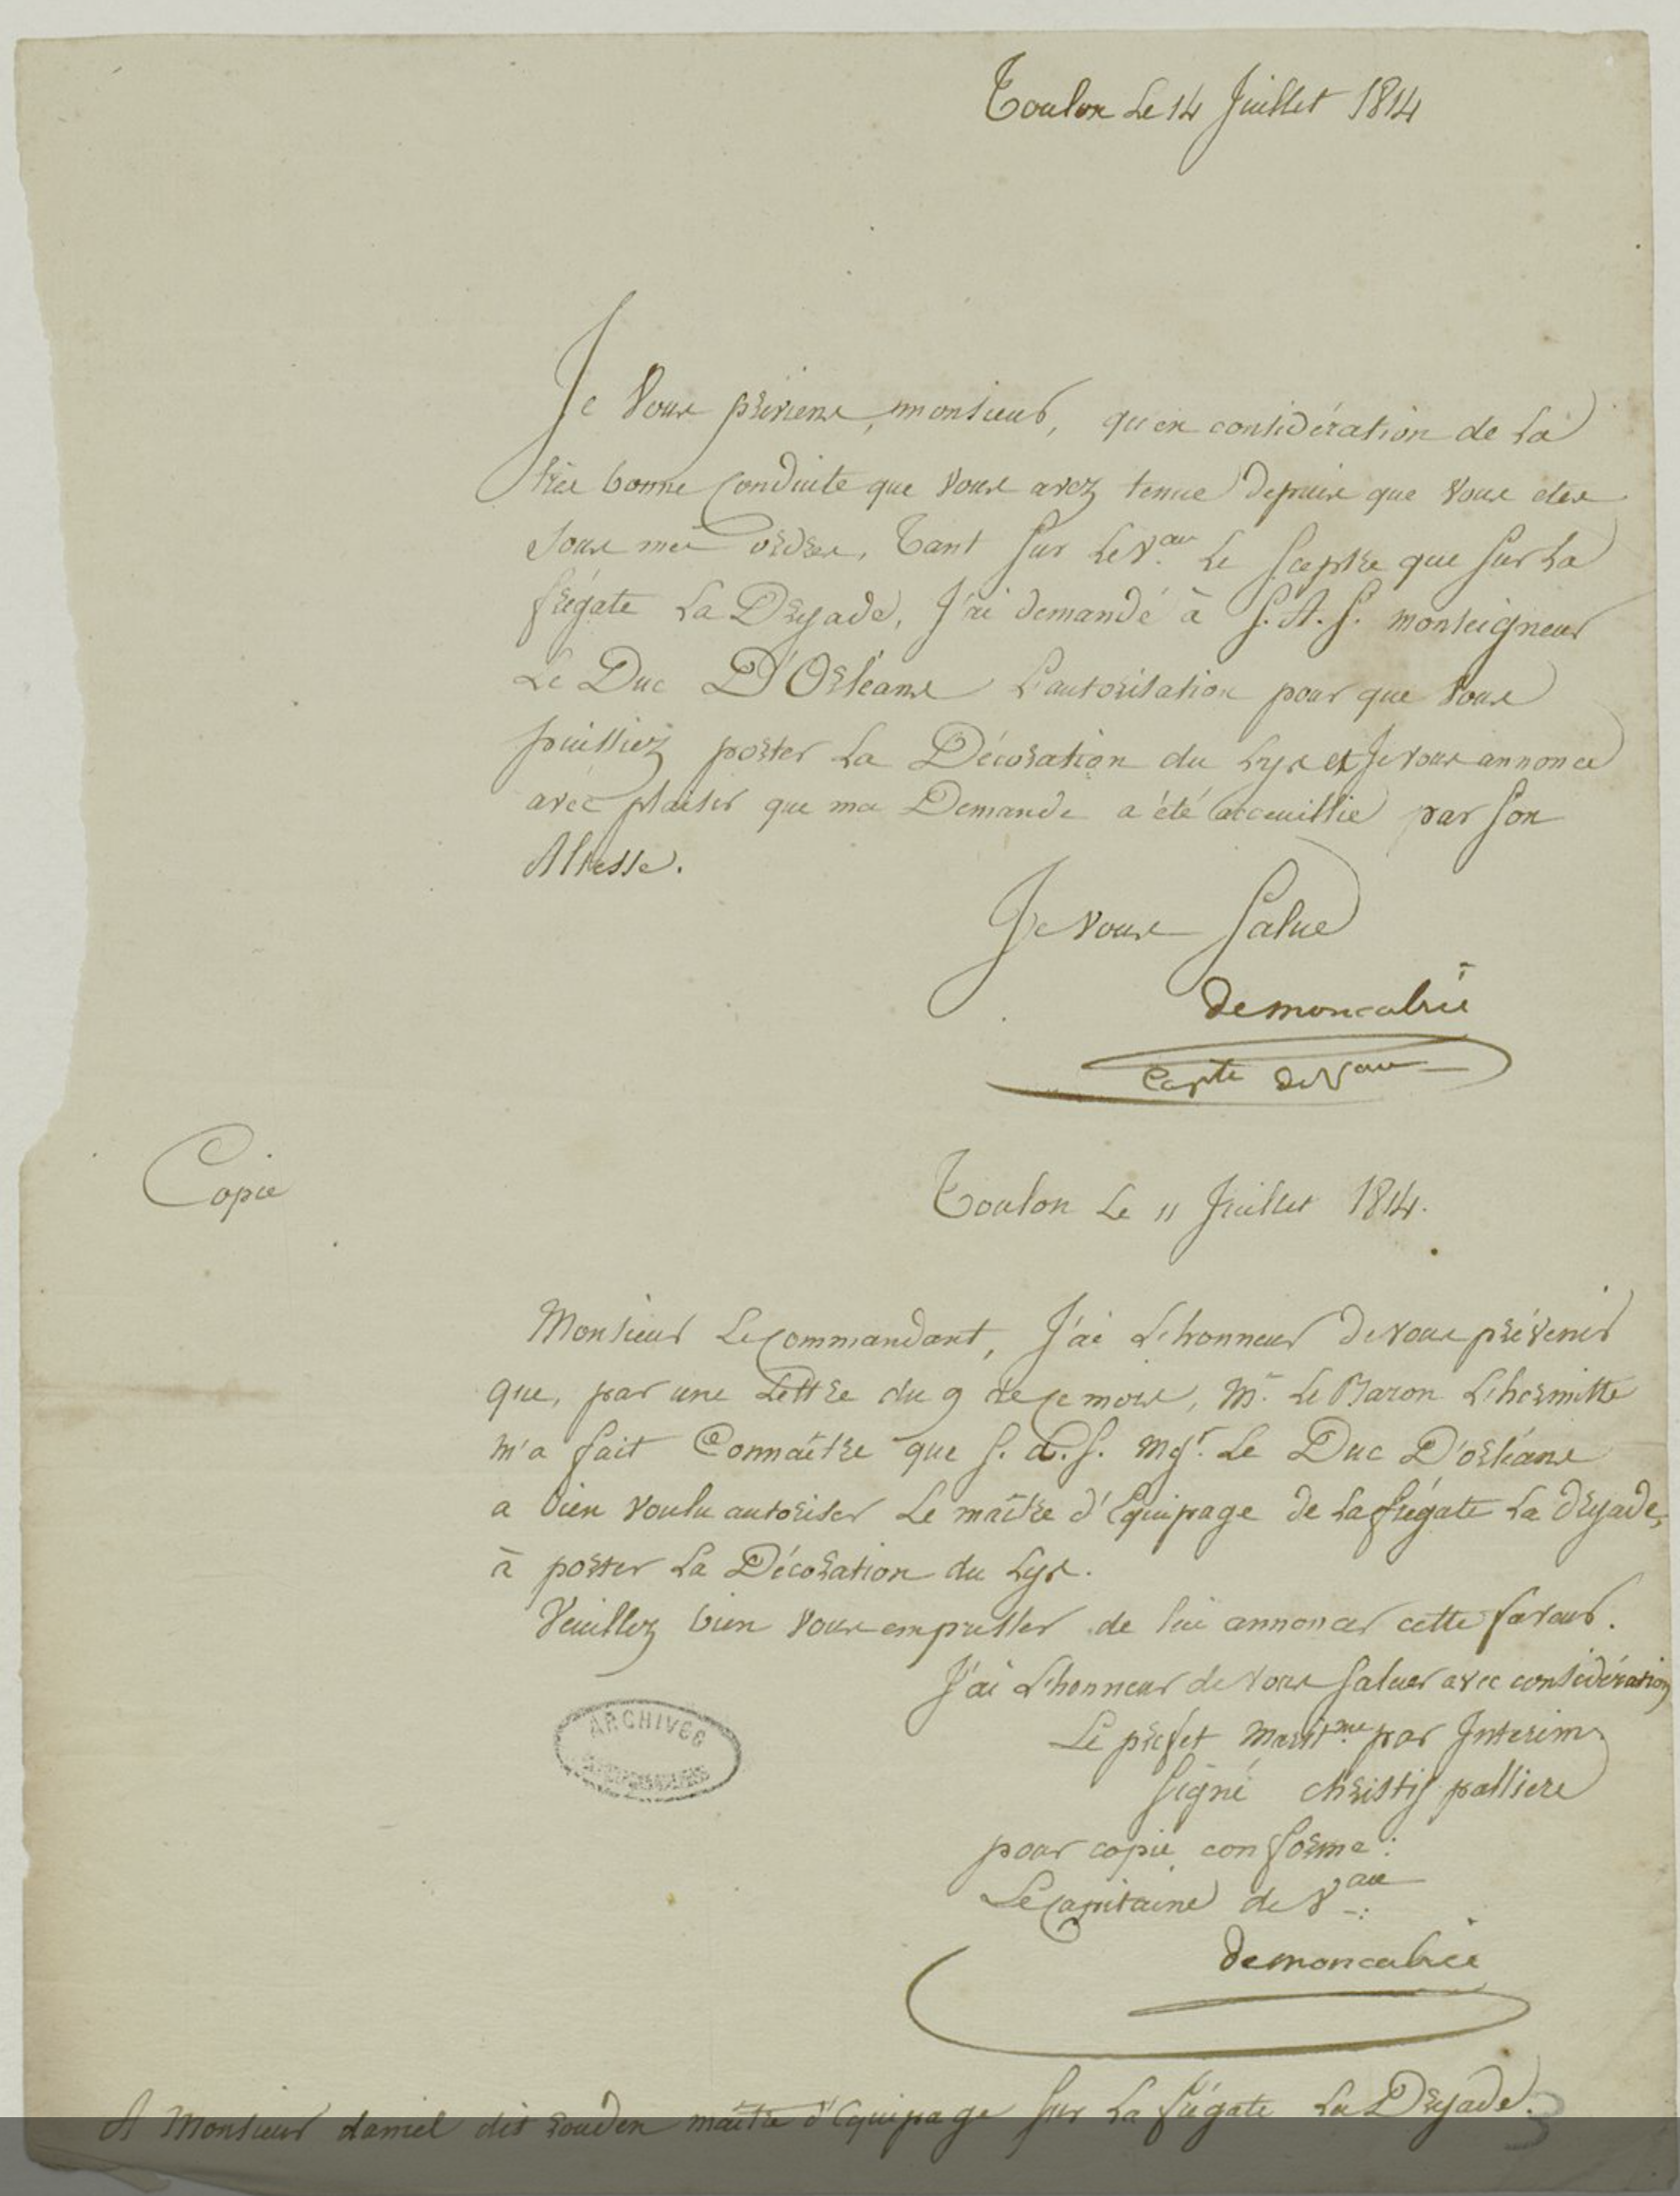 Toulon Le 14 Juillet 1814
Je Vous préviens, monsieur, qu'en considération de La
très bonne Conduite que Vous avez tenue Depuis que Vous etes
Sous mes ordres, Tant Sur Le V.au Le Sceptre que Sur La
frégate La Dryade, J'ai demandé à S. A. S. monseigneur
Le Duc D'Orléans L'autorisation pour que Vous
puissiez porter La Décoration du Lys et Je vous annonce
avec plaisir que ma Demande a été accueillie par Son
Altesse.
Je Vous Salue
demoncabrié
Capte de Vau
Copie
Toulon Le 11 Juillet 1814.
Monsieur Le Commandant, J'ai L'honneur De vous prévenir
que, par une Lettre du 9 de Ce mois, Mr. Le Baron L'hermitte
m'a fait Connaître que S. A. S. Mgr. Le Duc D'orléans
a bien voulu autoriser Le maître d'Equipage de La frégate La Dryade,
à porter La Décoration du Lys.
Veuillez bien Vous empresser de lui annoncer cette faveur.
J'ai L'honneur de vous Saluer avec considération
Le préfet Maritme. par Interim
Signé Christy palliere
pour copie conforme :
Le Capitaine de Vau :
demoncabrié
A Monsieur daniel dit maître d'Equipage Sur La frégate La Dryade.
ARCHIVES